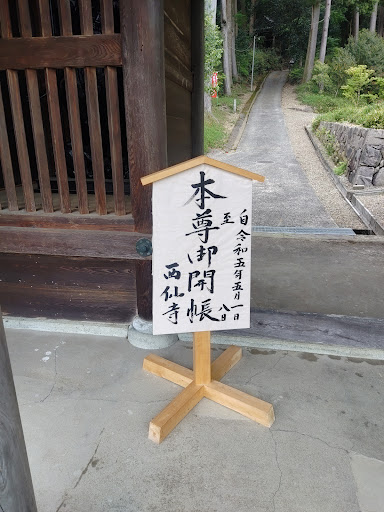 自令和五年五月一日
至　　　　　八日
本尊御開帳
西仙寺